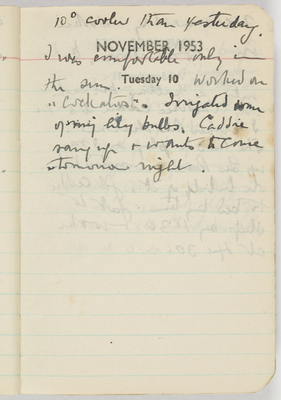 10° cooler than yesterday.
NOVEMBER, 1953
I was comfortable only in
the sun. Worked on
Tuesday 10
"Cockatoos". Irrigated some
spring lily bulbs. Caddie
rang up & wants to come
tomorrow night.